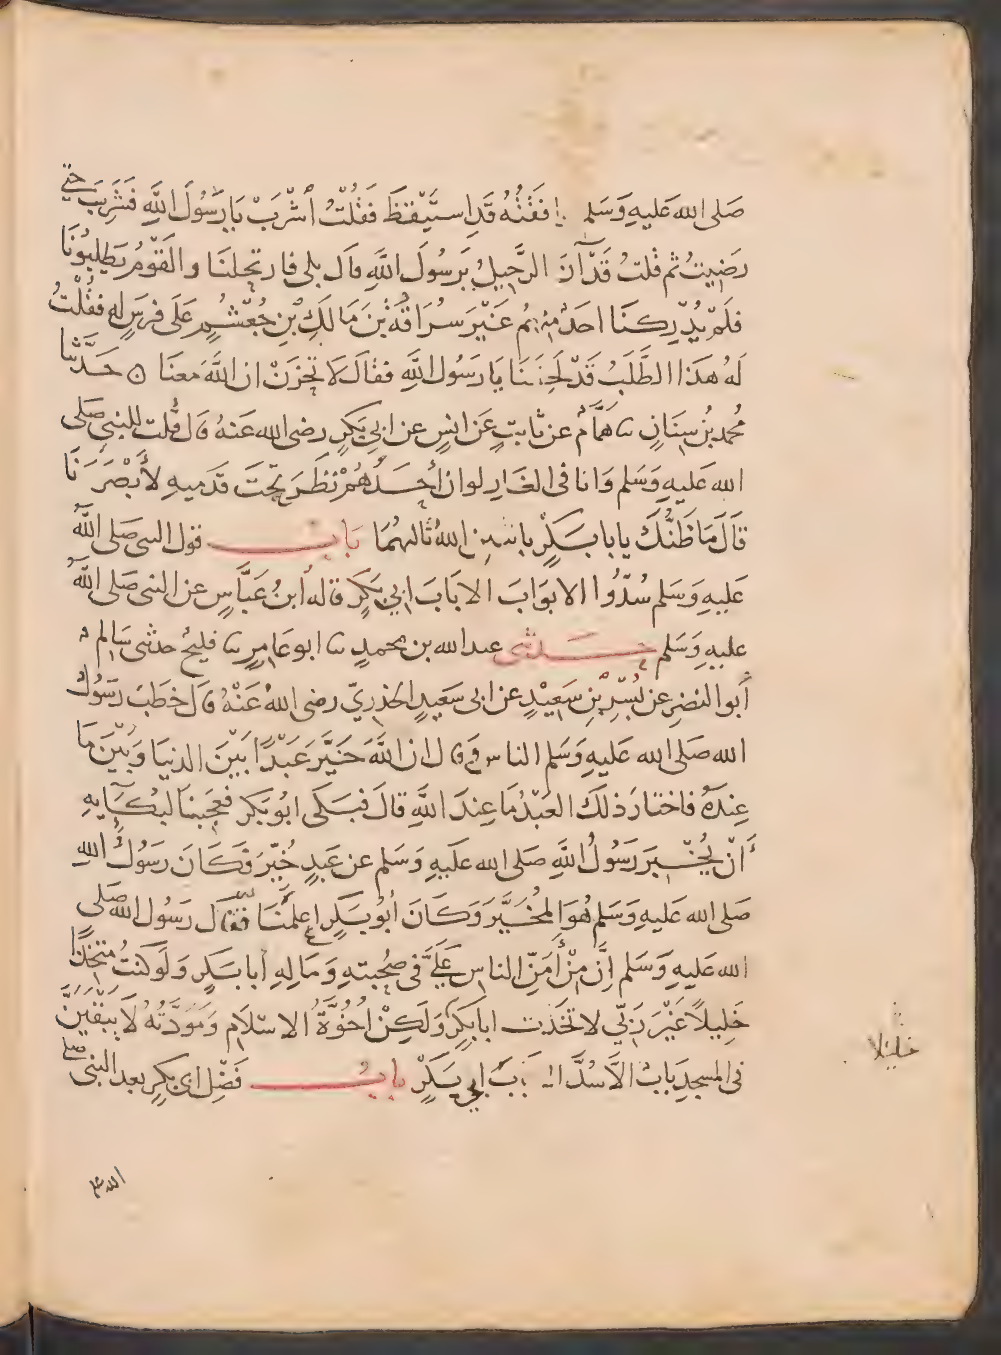 صَلى الله عَليهِ وَسَلم فوافَقْتُهُ قَدِ استَيْقَظَ فقُلتُ اُشْرَبْ يَا رَسُولَ اللَّهِ فَشَرِبَ حتى
رَضِيتُ ثم قلتُ قَدْ آنَ الرَّحِيلُ يَرسُولَ اللَّهِ قال بلى فارتحلنَا والقَوْمُ يَطلبُونَا
فَلَمْ يُدْرِكنَا احَدٌ منهم غَيْرَ سُرَاقَةَ بْنِ مَالِكِ بْنِ جُعْشُمٍ عَلَى فرَسٍ له فقُلْتُ
لَهُ هَذَا الطَّلَبُ قَدْ لَحِقَنَا يَا رَسُولَ اللَّهِ فقالَ لَا تحزَنْ ان اللَّهَ مَعنَا حَدَّثنا
مُحمد بْنُ سِنَانٍ ثنا هَمَّامٌ عن ثابتٍ عَن انسٍ عن ابي بَكرٍ رضي الله عَنهُ قال قُلت للنبي صَلى
الله عَليهِ وَسَلم وَانا في الغَارِ لو ان أحَدَهُمْ نظَرَ تحْتَ قدَميهِ لأَبْصَرَنَا
قَالَ مَا ظَنُّكَ يابا بَكْرٍ باثنين اللهُ ثَالثهُمَا بَاب قول النبي صَلى اللَّه
عَليهِ وَسَلم سُدُّوا الابوَابَ الا بَابَ ابي بَكرٍ قاله ابنُ عَبَّاسٍ عن النبي صَلى اللَّه
عليهِ وَسَلم حَدثني عبد الله بن محمدٍ ثنا ابو عَامِرٍ ثنا فليحٌ حدثني سَالم
أَبو النضرِ عن بُسْرِ بْنِ سَعِيْدٍ عن ابي سَعيدٍ الخدريّ رضي اللهُ عَنْهُ قال خطبَ رَسُولُ
الله صَلى الله عَليهِ وَسَلم الناس وقال ان اللَّهَ خَيَّرَ عَبْدًا بَيْنَ الدنيَا وَبَيْنَ مَا
عِندَهُ فاختارَ ذلكَ العَبْدُ مَا عِندَ اللَّهِ قالَ فبَكى ابُو بَكرٍ فعَجِبنَا لبُكَآيِهِ
أَنْ يُخْبِرَ رَسُولُ اللَّهِ صَلى الله عليهِ وَسَلم عن عَبدٍ خُيِّرَ فَكَانَ رَسُولُ الله
صَلى الله عَليهِ وَسَلم هُوَ المُخَيَّرَ وَكَانَ ابُو بَكرٍ اعلَمَنَا فقال رَسُولُ الله صَلى
الله عَليهِ وَسَلم اِنَّ مِنْ أَمَنِّ الناسِ عَلَيَّ في صُحبتهِ وَمَالهِ أبا بَكرٍ وَلَو كنتُ متخذًا
خَلِيلًا غَيْرَ رَبّي لاتخَذتُ ابا بَكرٍ وَلَكِنْ اُخُوَّةُ الاِسْلَامِ وَمَوَدَّتُهُ لَا يَبْقَيَنَّ
في المسجدِ بَابٌ الَّا سُدَّ الا بَابَ ابي بَكْرٍ بَاب فَضْلِ ابي بَكرٍ بعد النبي صلى
خليلا
الله ع